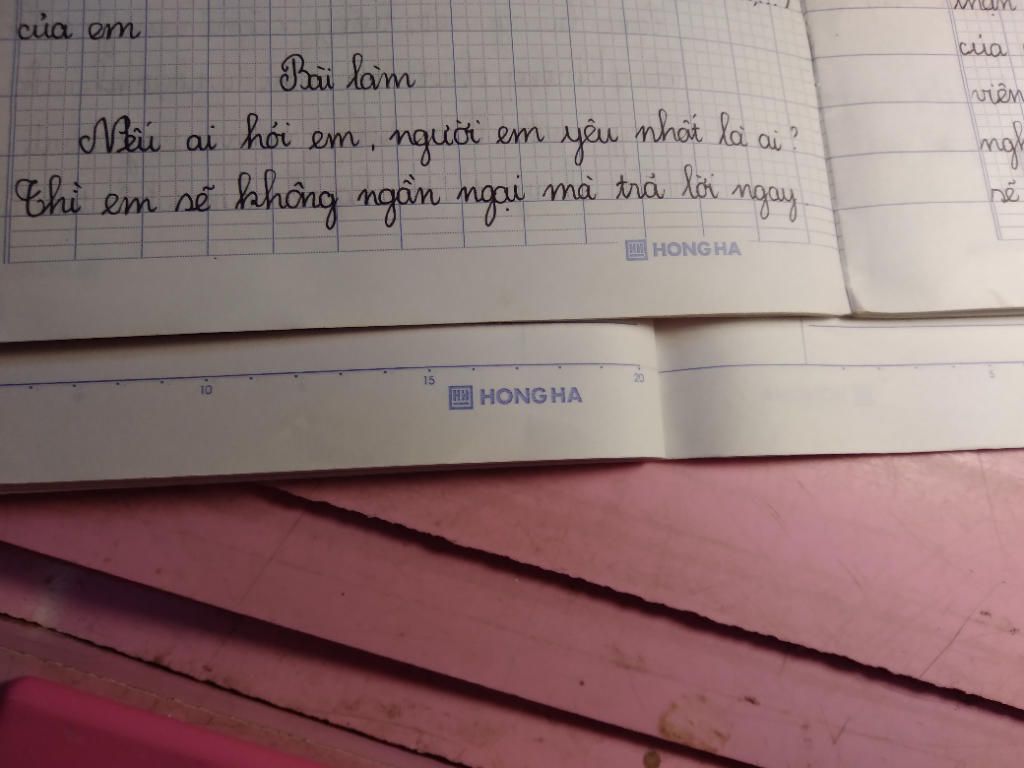 của em
Bài làm
Nếu ai hỏi em, người em yêu nhất là ai?
Thì em sẽ không ngần ngại mà trả lời ngay
HONG HA
của
viên
sẽ
10
15
HONG HA
20
5